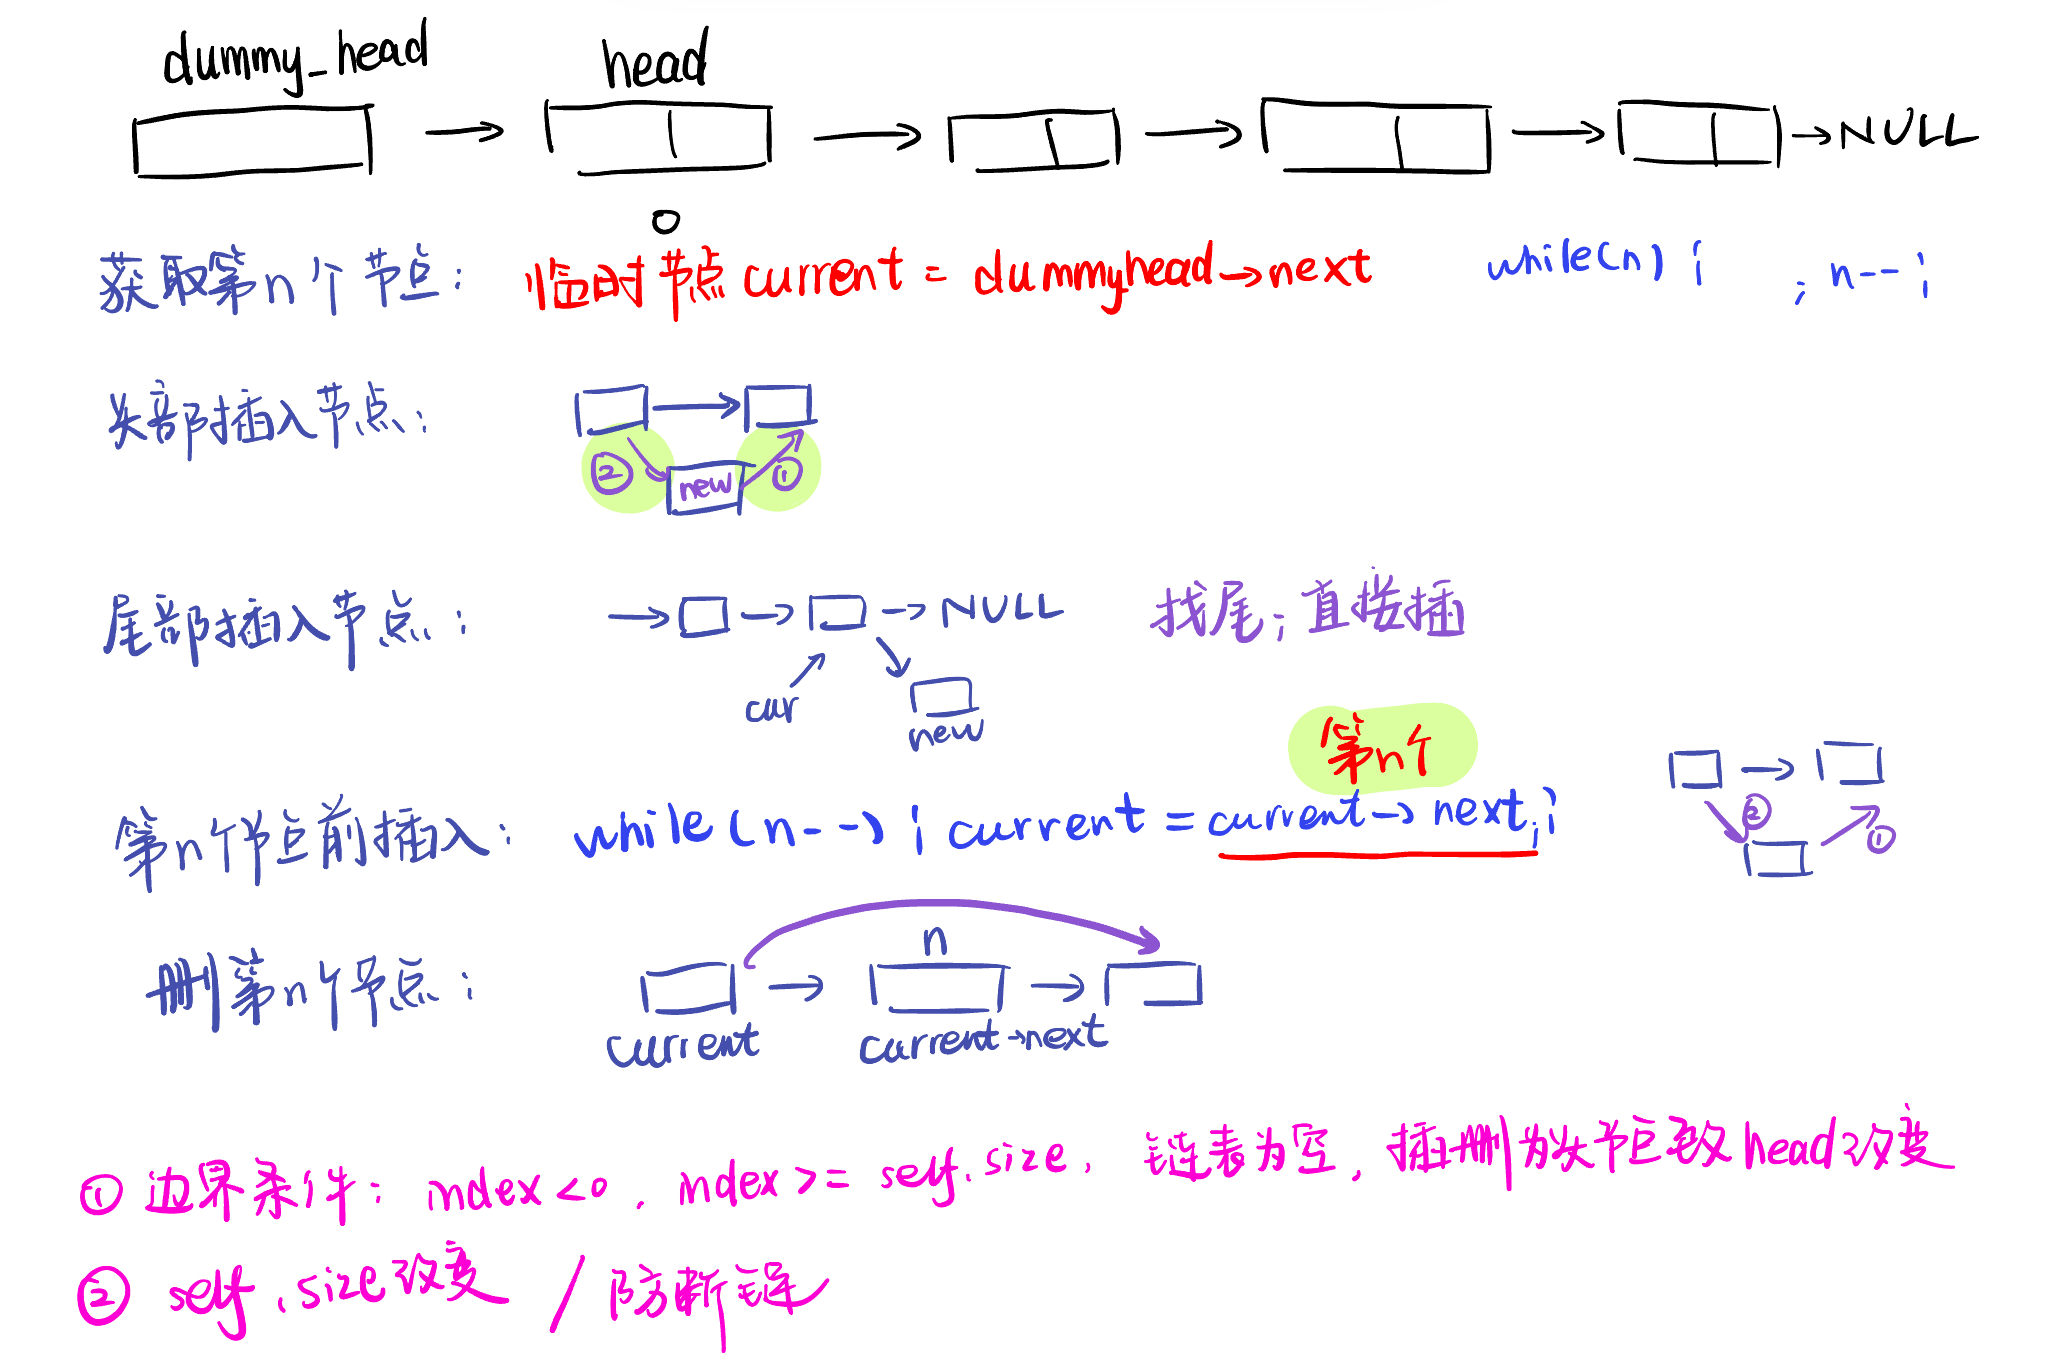 dummy_head head
→ → → → → NULL
0
获取第n个节点: 临时节点 current = dummyhead→next while(n) ; ; n--;
头部插入节点:
② new ①
尾部插入节点: → → → NULL 找尾; 直接插
cur new
第n个
第n个节点前插入: while(n--) ; current = current→next; ② ①
n
删第n个节点:
current current→next
① 边界条件: index<0, index>= self.size, 链表为空, 插删为头节点致 head改变
② self.size改变 / 防断链